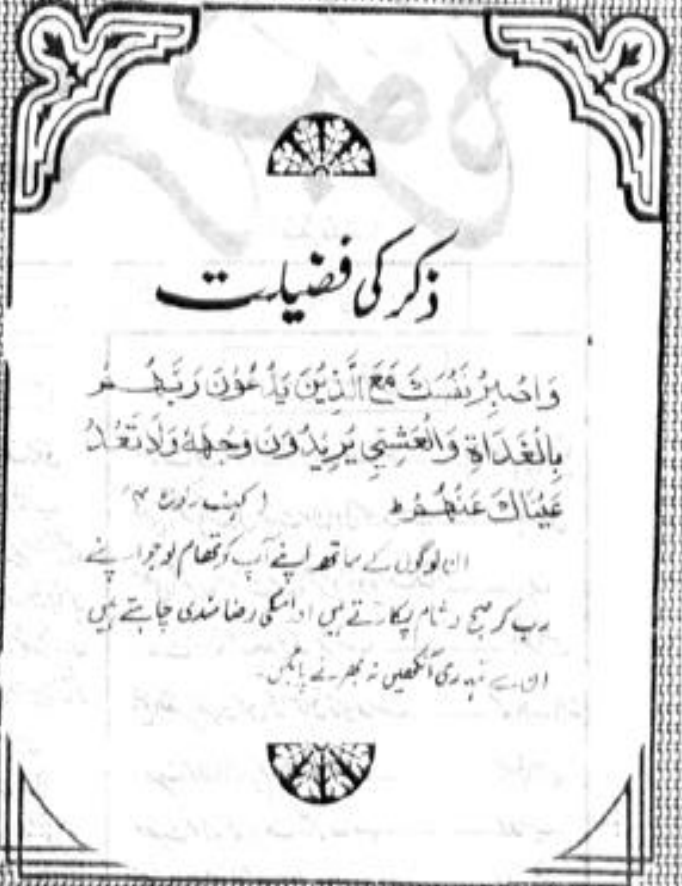 ذکر کی فضیلت
وَاصْبِرْ نَفْسَكَ مَعَ الَّذِیْنَ یَدْعُوْنَ رَبَّهُمْ
بِالْغَدَاةِ وَالْعَشِیِّ یُرِیْدُوْنَ وَجْهَهٗ وَلَا تَعْدُ
عَیْنَاكَ عَنْهُمْ ط (کہف رکوع ۴)
ان لوگوں کے ساتھ اپنے آپ کو تھام لو جو اپنے
رب کو صبح و شام پکارتے ہیں اور اسکی رضا مندی چاہتے ہیں
ان سے تمہاری آنکھیں نہ پھرنے پائیں۔